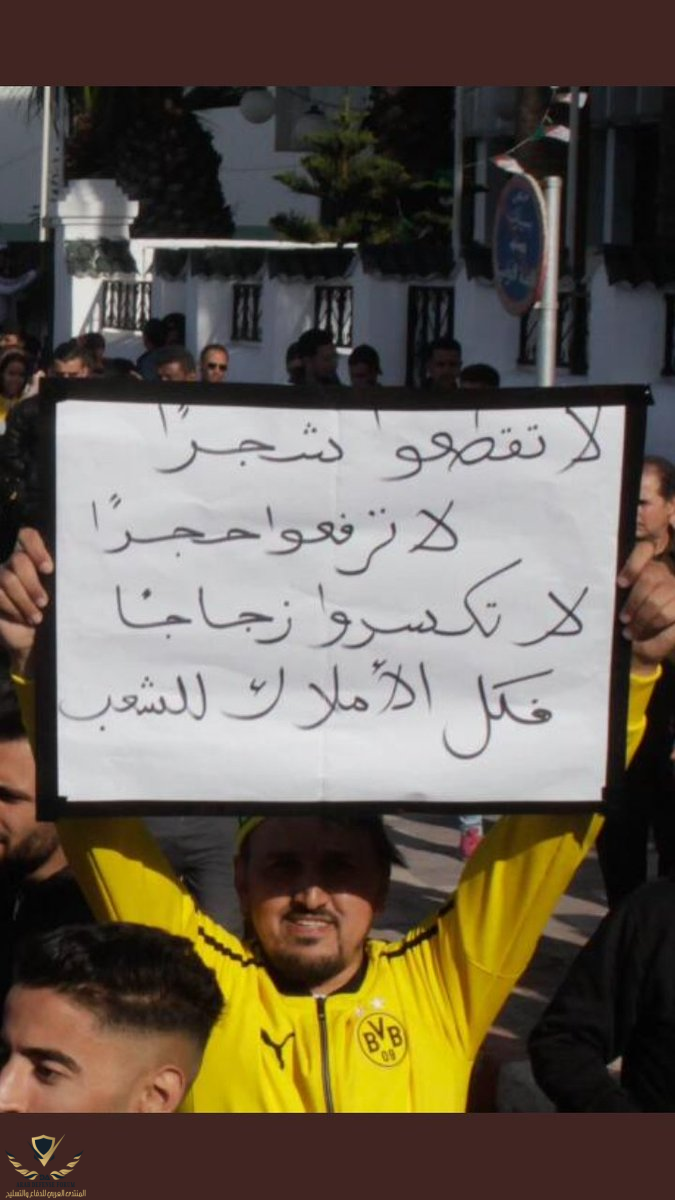 لا تقطعوا شجرًا
لا ترفعوا حجرًا
لا تكسروا زجاجًا
فكل الأملاك للشعب
BVB
09
المنتدى العربي للدفاع والتسليح